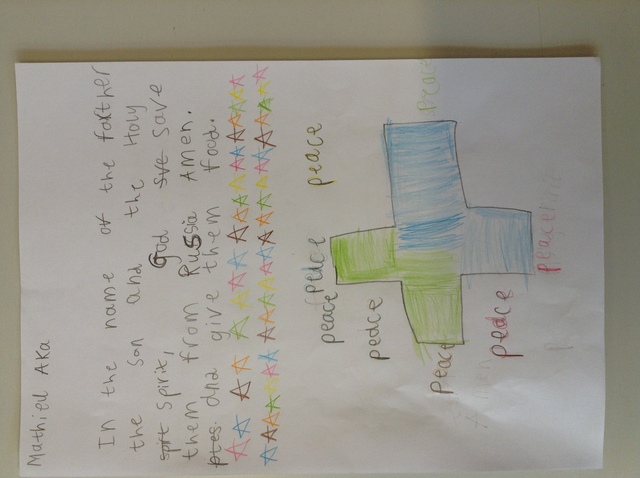 Mathieu Aka
In the name of the farther
the son and the Holy
sprt spirit, God sve save
them from Russia Amen.
ptes. and give them food.
peace peace peace
peace
peace peace
peace